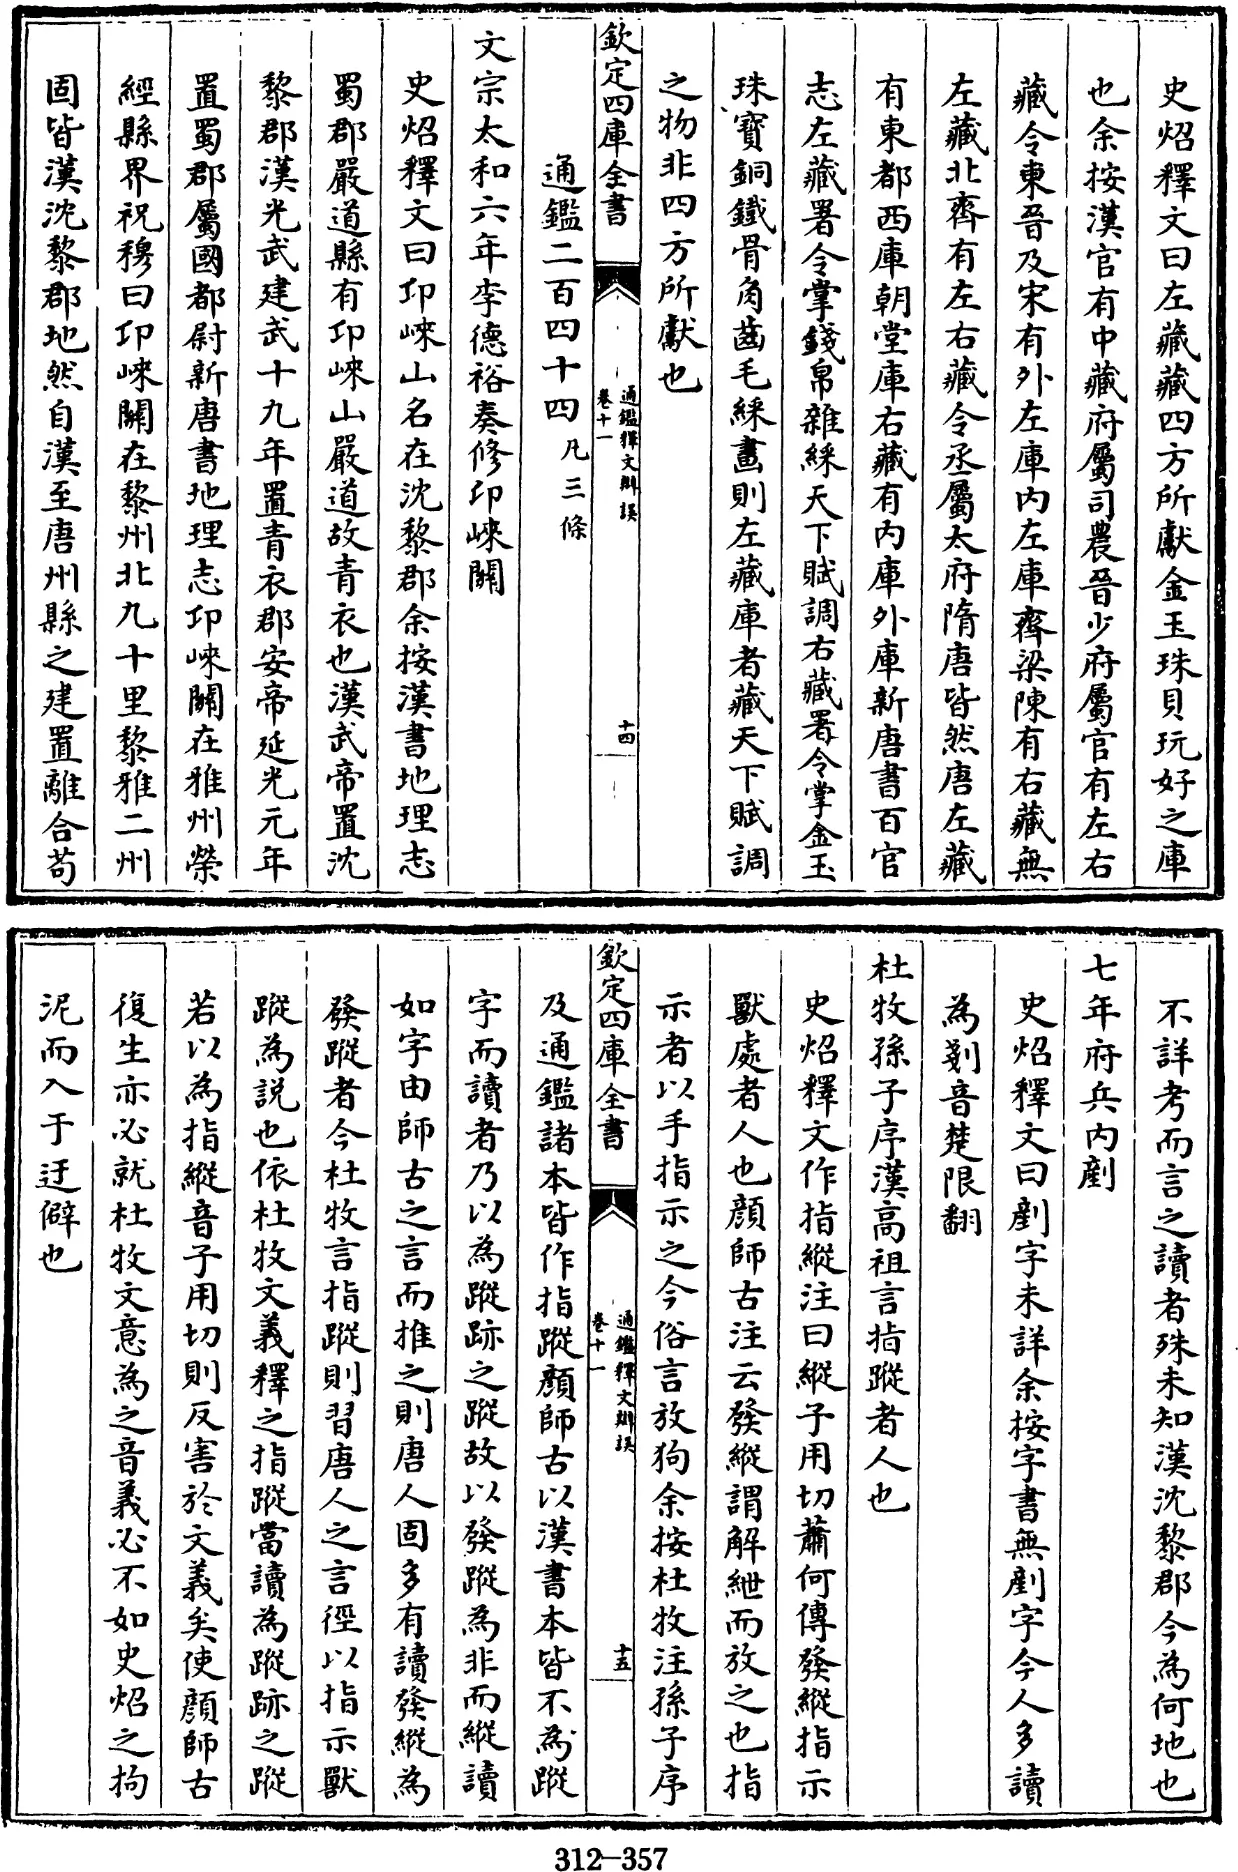 史炤釋文曰左藏藏四方所獻金玉珠貝玩好之庫
也余按漢官有中藏府屬司農晉少府屬官有左右
藏令東晉及宋有外左庫内左庫齊梁陳有右藏無
左藏北齊有左右藏令丞屬太府隋唐皆然唐左藏
有東都西庫朝堂庫右藏有内庫外庫新唐書百官
志左藏署令掌錢帛雜綵天下賦調右藏署令掌金玉
珠寶銅鐵骨角齒毛綵畫則左藏庫者藏天下賦調
之物非四方所獻也
欽定四庫全書
通鑑釋文辨誤
卷十一
十四
通鑑二百四十四凡三條
文宗太和六年李德裕奏修邛崍關
史炤釋文曰邛崍山名在沈黎郡余按漢書地理志
蜀郡嚴道縣有邛崍山嚴道故青衣也漢武帝置沈
黎郡漢光武建武十九年置青衣郡安帝延光元年
置蜀郡屬國都尉新唐書地理志邛崍關在雅州榮
經縣界祝穆曰邛崍關在黎州北九十里黎雅二州
固皆漢沈黎郡地然自漢至唐州縣之建置離合苟
不詳考而言之讀者殊未知漢沈黎郡今為何地也
七年府兵内剷
史炤釋文曰剷字未詳余按字書無剷字今人多讀
為剗音楚限翻
杜牧孫子序漢高祖言指蹤者人也
史炤釋文作指縱注曰縱子用切蕭何傳發縱指示
獸處者人也顔師古注云發縱謂解紲而放之也指
示者以手指示之今俗言放狗余按杜牧注孫子序
欽定四庫全書
通鑑釋文辨誤
卷十一
十五
及通鑑諸本皆作指蹤顔師古以漢書本皆不為蹤
字而讀者乃以為蹤跡之蹤故以發蹤為非而縱讀
如字由師古之言而推之則唐人固多有讀發縱為
發蹤者今杜牧言指蹤則習唐人之言徑以指示獸
蹤為説也依杜牧文義釋之指蹤當讀為蹤跡之蹤
若以為指縱音子用切則反害於文義矣使顔師古
復生亦必就杜牧文意為之音義必不如史炤之拘
泥而入于迂僻也
312-357